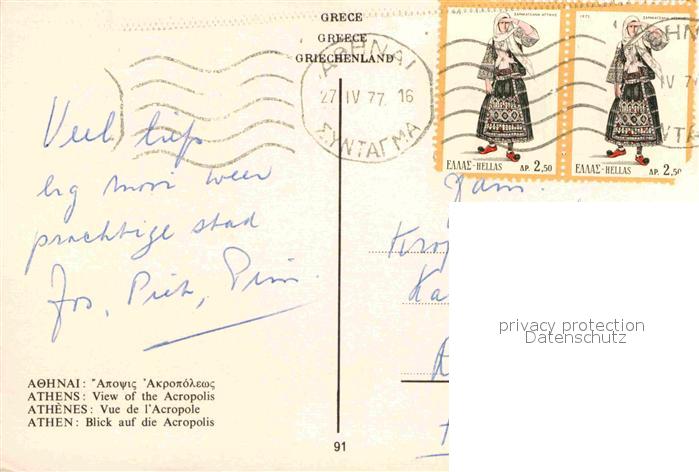 GRECE
GREECE
GRIECHENLAND
ΑΘΗΝΑΙ
27 IV 77. 16
ΣΥΝΤΑΓΜΑ
ΕΛΛΑΣ-HELLAS ΔΡ. 2,50
ΕΛΛΑΣ-HELLAS ΔΡ. 2,50
Veel liefs
erg mooi weer
prachtige stad
Jos, Piet, Pim.
Fam.
privacy protection
Datenschutz
ΑΘΗΝΑΙ: Ἄποψις Ἀκροπόλεως
ATHENS: View of the Acropolis
ATHÈNES: Vue de l'Acropole
ATHEN: Blick auf die Acropolis
91